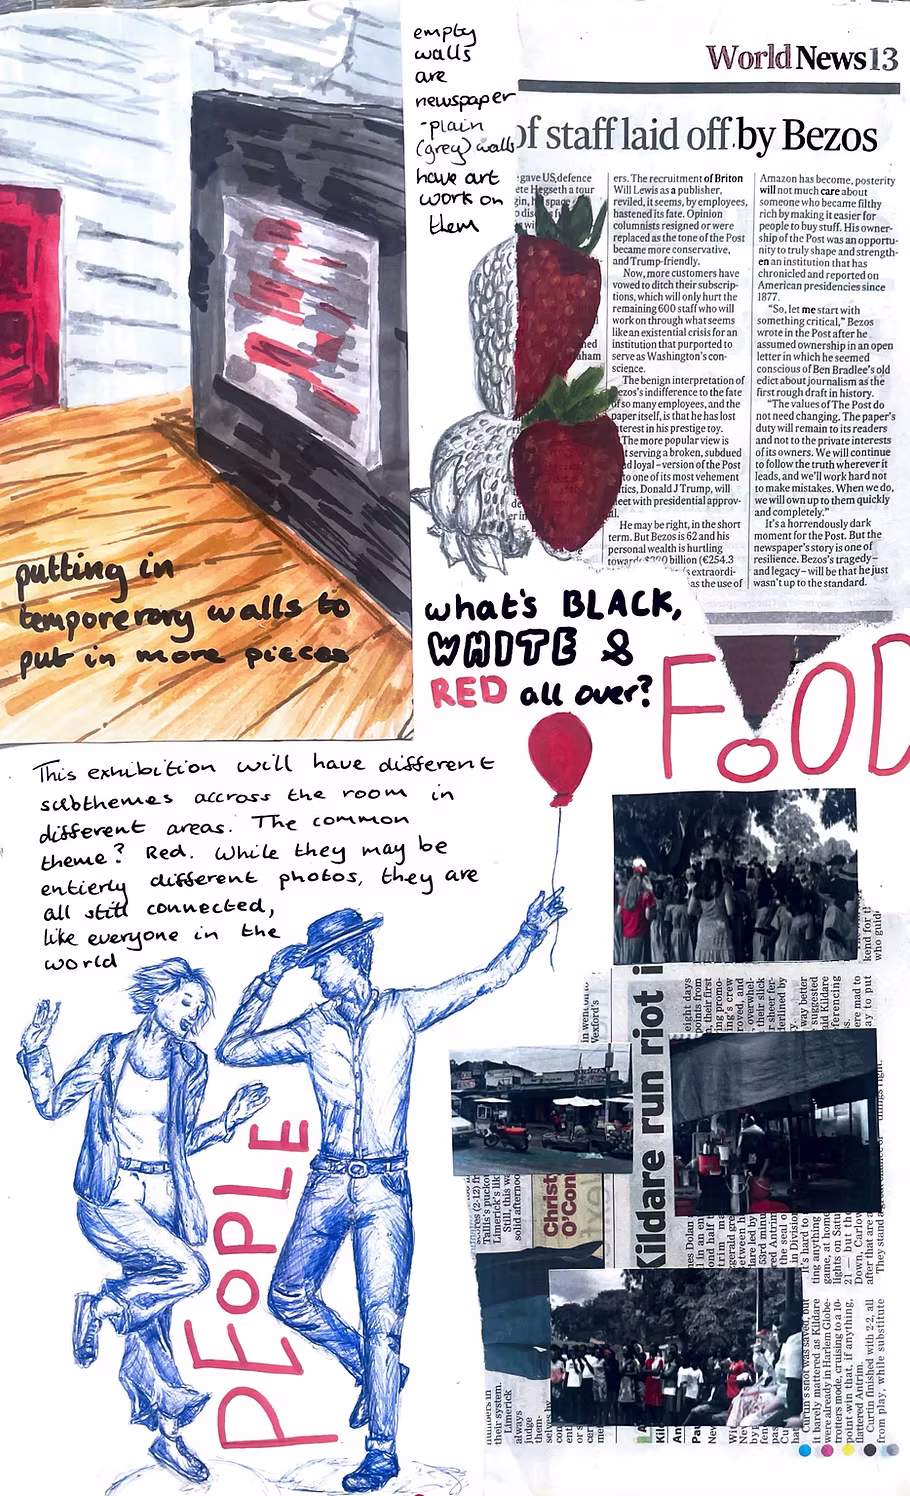 empty
walls
are
newspaper
-plain
(grey) walls
have art
work on
them
World News 13
of staff laid off by Bezos
gave US defence
Hegseth a tour
ers. The recruitment of Briton
Will Lewis as a publisher,
reviled, it seems, by employees,
hastened its fate. Opinion
columnists resigned or were
replaced as the tone of the Post
became more conservative,
and Trump-friendly.
Now, more customers have
vowed to ditch their subscrip-
tions, which will only hurt the
remaining 600 staff who will
work on through what seems
like an existential crisis for an
institution that purported to
serve as Washington's con-
science.
The benign interpretation of
ezos's indifference to the fate
of so many employees, and the
paper itself, is that he has lost
terest in his prestige toy.
The more popular view is
t serving a broken, subdued
d loyal – version of the Post
to one of its most vehement
tics, Donald J Trump, will
eet with presidential approv-
al.
He may be right, in the short
term. But Bezos is 62 and his
personal wealth is hurtling
billion (€254.3
extraordi-
as the use of
Amazon has become, posterity
will not much care about
someone who became filthy
rich by making it easier for
people to buy stuff. His owner-
ship of the Post was an opportu-
nity to truly shape and strength-
en an institution that has
chronicled and reported on
American presidencies since
1877.
"So, let me start with
something critical," Bezos
wrote in the Post after he
assumed ownership in an open
letter in which he seemed
conscious of Ben Bradlee's old
edict about journalism as the
first rough draft in history.
"The values of The Post do
not need changing. The paper's
duty will remain to its readers
and not to the private interests
of its owners. We will continue
to follow the truth wherever it
leads, and we'll work hard not
to make mistakes. When we do,
we will own up to them quickly
and completely."
It's a horrendously dark
moment for the Post. But the
newspaper's story is one of
resilience. Bezos's tragedy –
and legacy – will be that he just
wasn't up to the standard.
putting in
temporerory walls to
put in more pieces
what's BLACK,
WHITE &
RED all over?
FOOD
This exhibition will have different
subthemes accross the room in
different areas. The common
theme? Red. While they may be
entierly different photos, they are
all still connected,
like everyone in the
world
PEOPLE
kend for th
who guid
Kildare run riot i
in went on to
Vexford's
eight days
points from
, their first
ing promo-
ing's crew
roved, and
overwhel-
their slick
sheer ter-
derlined by
y.
way better
suggested
aid Kildare
ferencing
s.
ere mad to
ay to put
things right.
Christ
O'Con
cores (2-12) fr
Talla's puckou
Limerick's lik
Still, this wa
sold afternoo
nes Dolan
l in an Al
ond half t
trim ma
gerald gre
etween h
lare led by
53rd minu
ed Antrim
the seal o
in Divisio
It's hard to
ting anything
game, at home
lights on Satu
21 – but the
Down, Carlow
after that are a
They stand
numbers in
their system.
Limerick
always
judge
them-
selves by
Curtin's shot was saved, but
it barely mattered as Kildare
were already in Harlem Globe-
trotters mode, cruising to a 10-
point win that, if anything,
flattered Antrim.
Curtin finished with 2-2, all
from play, while substitute